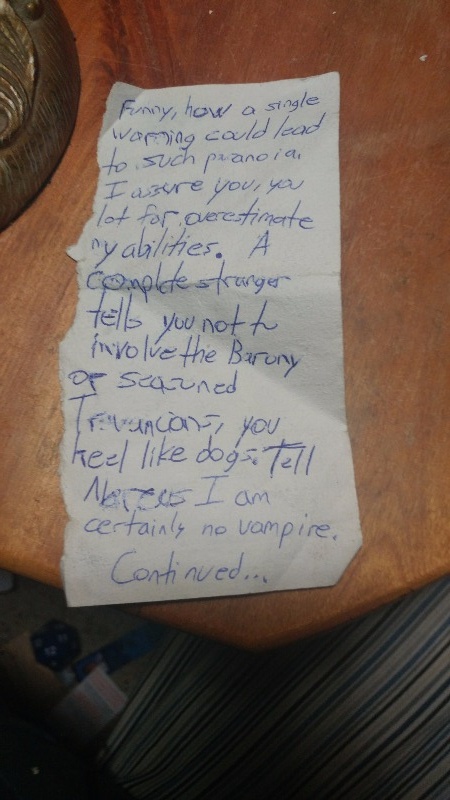 Funny, how a single
warning could lead
to such paranoia.
I assure you, you
lot far overestimate
my abilities. A
complete stranger
tells you not to
involve the Barony
or seasoned
you
heel like dogs. Tell
I am
certainly no vampire.
Continued...